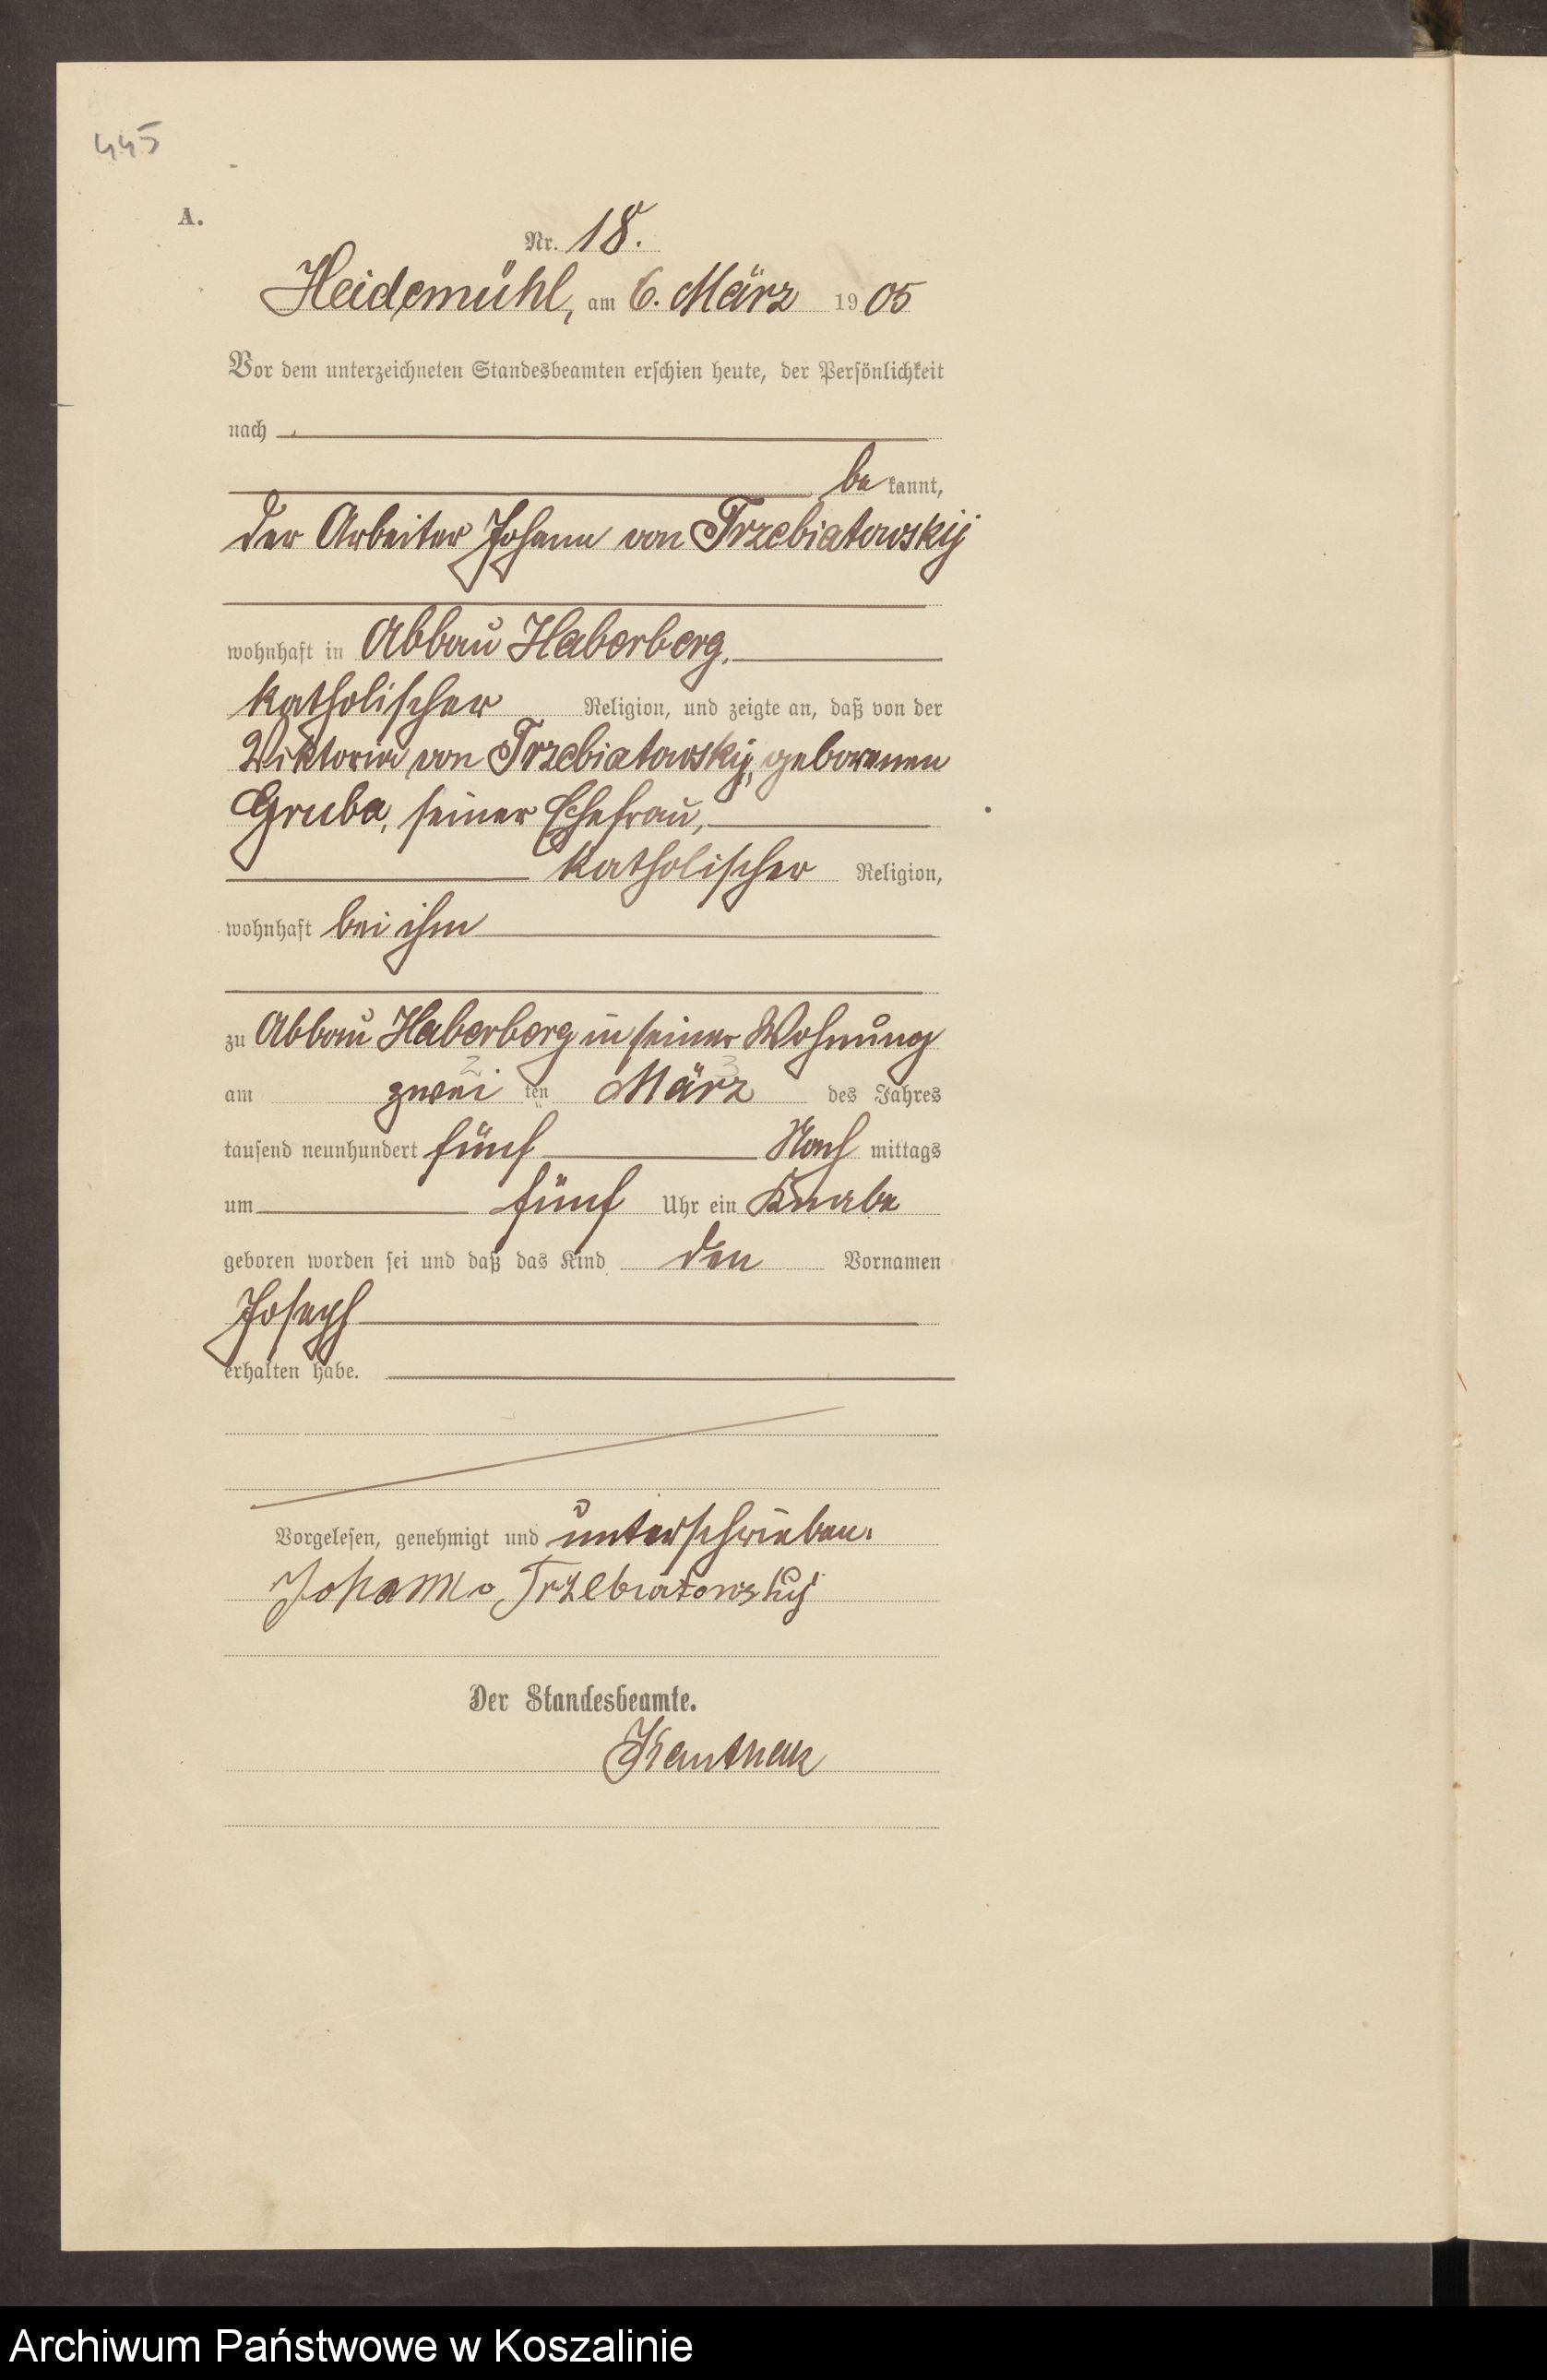 445
A.
Nr. 18.
Heidemühl, am 6. März 1905
Vor dem unterzeichneten Standesbeamten erschien heute, der Persönlichkeit
nach
be kannt,
der Arbeiter Johann von Trzebiatowskij
wohnhaft in Abbau Haberberg,
katholischer Religion, und zeigte an, daß von der
Viktoria von Trzebiatowskij, geborenen
Gruba, seiner Ehefrau,
katholischer Religion,
wohnhaft bei ihm
zu Abbau Haberberg in seiner Wohnung
2 3
am zwei ten März des Jahres
tausend neunhundert fünf Nach mittags
um fünf Uhr ein Knabe
geboren worden sei und daß das Kind den Vornamen
Joseph
erhalten habe.
Vorgelesen, genehmigt und unterschrieben.
Johann v Trzebiatowskij
Der Standesbeamte.
Archiwum Państwowe w Koszalinie